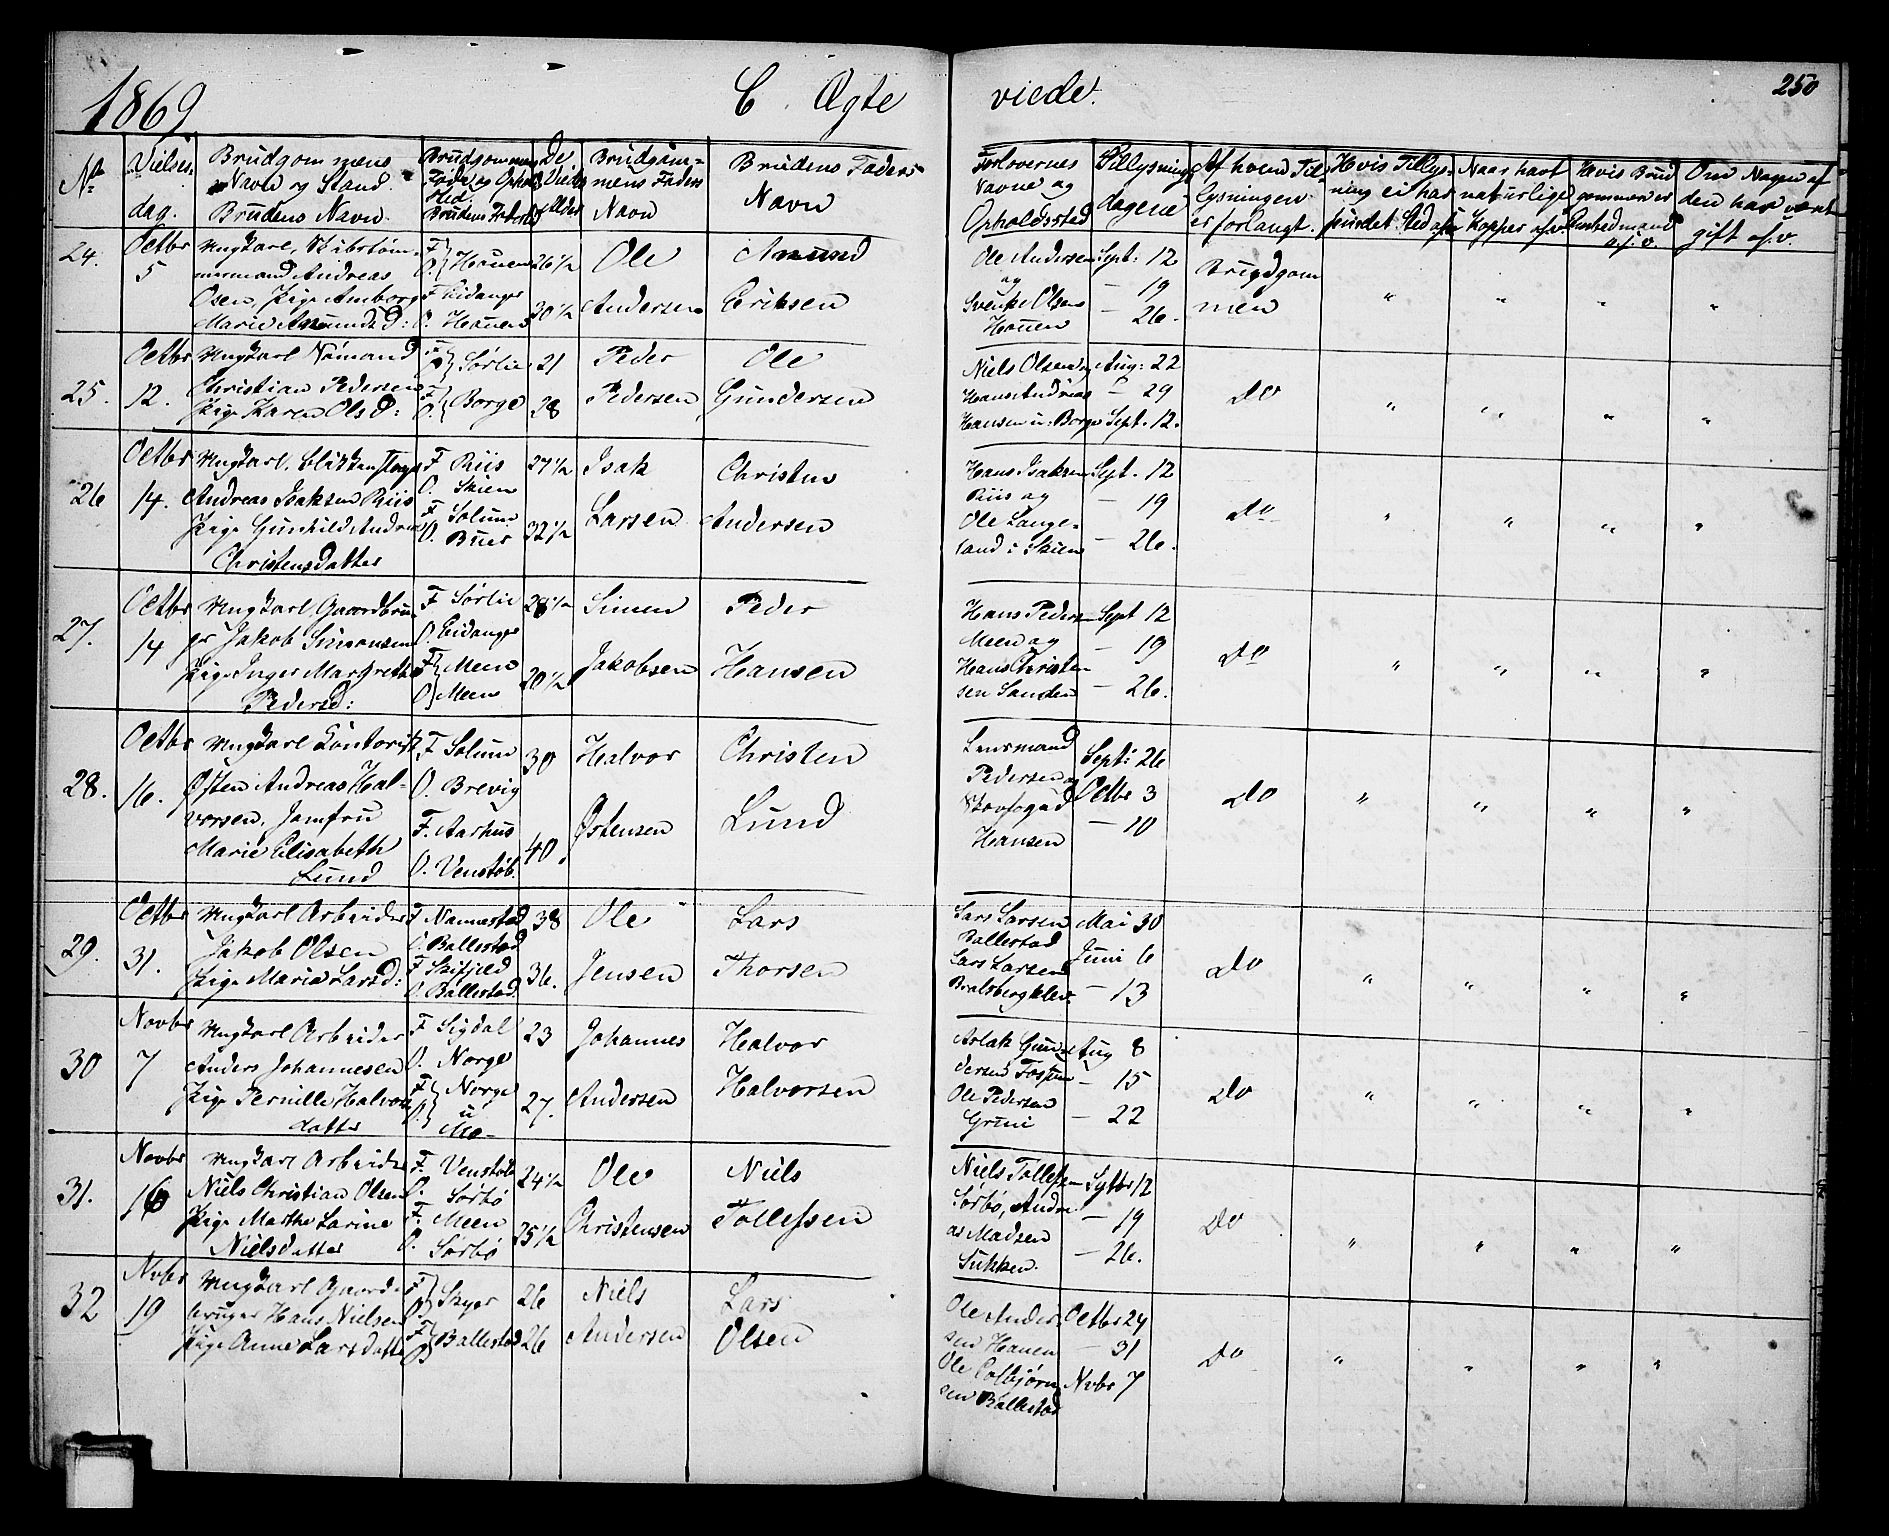 1869 C. Ægte viede. 250
No Vielses dag. Brudgommens Navn og Stand. Brudens Navn. Brudgommens Føde og Opholds Sted, Brudens Fødested De Viedes Alder Brudgommens Faders Navn Brudens Faders Navn Forlovernes Navne og Opholdssted Tillysnings dagene Af hvem Tillysningen er forlangt. Hvis Tillysning ei har fundet Sted Naar havt naturlige Kopper Hvis Brudgommen er Enkemand Om Nogen af den har været gift
24. Octbr 5
Ungkarl, Skibstøm-
mermand Andreas
Olsen, Pige Amborg
Marie Amunds D:
F O } Houen
F Eidanger
O. Houen
26½
30½
Ole
Andersen
Amund
Eriksen
Ole Andersen
og
Svenke Olsen
Houen
Sept: 12
— 19
— 26.
Brugdgom
men
" " " "
25. Octbr 12.
Ungkarl Sømand
Christian Pedersen
Pige Karen Olsd:
F O } Sørlie
F O } Borge
21
28
Peder
Pedersen
Ole
Gundersen
Niels Olsen og
Hans Andreas
Hansen i: Borge
Aug: 22
— 29
Sept. 12.
Do
" " " "
26 Octbr 14.
Ungkarl,
Andreas Isaksen Riis
Pige Gunhild Andrea
Christensdatter
F Riis
O. Skien
F Solum
O. Buer
27½
32½
Isak
Larsen
Christen
Andersen
Hans Isaksen
Riis og
Ole Lange-
land i Skien
Sept. 12
— 19
— 26.
Do
" " " "
27. Octbr 14
Ungkarl, Gaardbru-
ger Jakob Simonsen
Pige Inger Margrethe
Pedersd:
F Sørlie
O. Eidanger
F } Meen
O } Meen
28½
20½
Simen
Jakobsen
Peder
Hansen
Hans Pedersen
Meen og
Hans Christen
sen Sanden
Sept 12
— 19
— 26.
Do
" " " "
28. Octbr 16.
Ungkarl Kontorist
Østen Andreas Hal-
vorsen, Jomfru
Marie Elisabeth
Lund
F Solum
O. Brevig
F. Aarhus
O. Venstøb.
30
40.
Halvor
Østensen
Christen
Lund
Lensmand
Pedersen og
Skovfogd
Hansen
Sept: 26
Octbr 3
— 10
Do
" " " "
29. Octbr 31.
Ungkarl Arbeider
Jakob Olsen
Pige Maria Larsd:
F Nannestad
O. Ballestad
F Skifjeld
O. Ballestad.
38
36.
Ole
Jensen
Lars
Thorsen
Lars Larsen
Ballestad
Lars Larsen
Bratsbergklev.
Mai 30
Juni 6
— 13
Do
" " " "
30 Novbr 7
Ungkarl Arbeider
Anders Johannesen
Pige Pernille Halvors
datter
F Sigdal
O. Norge
F O } Norge
u
Mo-
23
27.
Johannes
Andersen
Halvor
Halvorsen
Aslak Gun-
dersen Fossum
Ole Pedersen
Grini
Aug 8
— 15
— 22
Do
" " " "
31. Novbr 16
Ungkarl Arbeider
Niels Christian Olsen
Pige Marthe Larine
Nielsdatter
F. Venstøb
O. Sørbø
F. Meen
O. Sørbø
24½
25½
Ole
Christensen
Niels
Tollefsen
Niels Tollefsen
Sørbø, Andre
as Madsen
Sukken.
Sptbr 12
— 19
— 26.
Do
" " " "
32 Novbr 19
Ungkarl Gaard-
bruger Hans Nielsen
Pige Anne Larsdatter
F O } Skyer
F O } Ballestad
26
26
Niels
Andersen
Lars
Olsen
Ole Ander
sen Houen
Ole Colbjørn
sen Ballestad
Octbr 24
— 31
Novbr 7
Do
" " " "